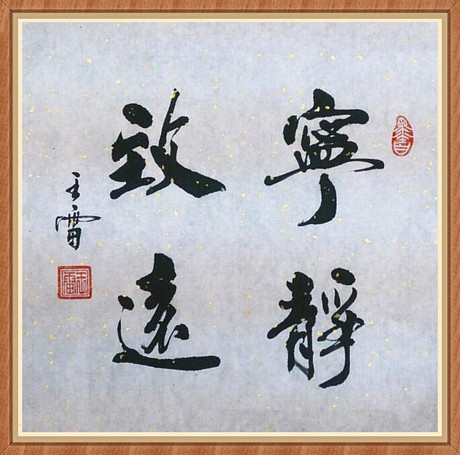 寧靜
致遠
王雷